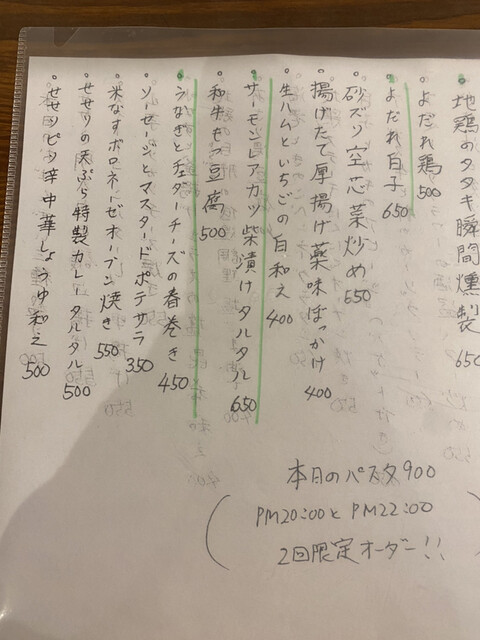 地鶏のタタキ瞬間燻製 650
よだれ鶏 500
よだれ白子 650
砂ズリ空芯菜炒め 550
揚げたて厚揚げ薬味ぶっかけ 400
生ハムといちごの白和え 400
サーモンレアカツ柴漬けタルタル 650
和牛もつ豆腐 500
うなぎとチェダーチーズの春巻き 450
ソーセージとマスタードポテサラ 350
米なすボロネーゼオーブン焼き 550
せせりの天ぷら特製カレータルタル 500
せせりピリ辛中華しょうゆ和え 500
本日のパスタ900
(PM20:00とPM22:00
2回限定オーダー!!